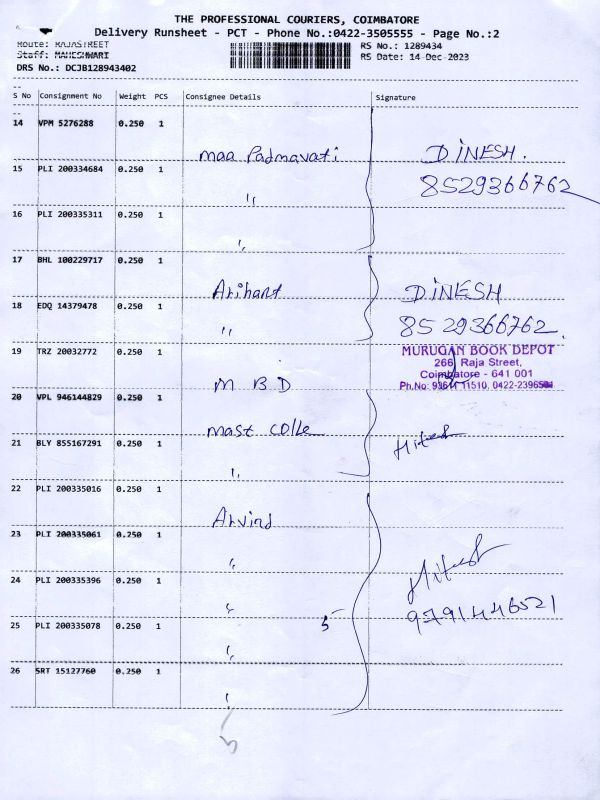 THE PROFESSIONAL COURIERS, COIMBATORE
Delivery Runsheet - PCT - Phone No.:0422-3505555 - Page No.:2
Route: RAJASTREET
RS No.: 1289434
Staff: MAHESHWARI
RS Date: 14-Dec-2023
DRS No.: DCJB128943402
S No Consignment No Weight PCS Consignee Details Signature
14 VPM 5276288 0.250 1
maa Padmavati DINESH.
15 PLI 200334684 0.250 1 8529366762
"
16 PLI 200335311 0.250 1
"
17 BHL 100229717 0.250 1
Arihant DINESH
18 EDQ 14379478 0.250 1
" 8529366762.
19 TRZ 20032772 0.250 1 MURUGAN BOOK DEPOT
266, Raja Street,
M B D Coimbatore - 641 001
Ph.No: 11510, 0422-
20 VPL 946144829 0.250 1
mast COlle
21 BLY 855167291 0.250 1 Hitesh
"
22 PLI 200335016 0.250 1
Arvind
23 PLI 200335061 0.250 1
"
24 PLI 200335396 0.250 1 Hitesh
" 9791446521
25 PLI 200335078 0.250 1 5
"
26 SRT 15127760 0.250 1
"